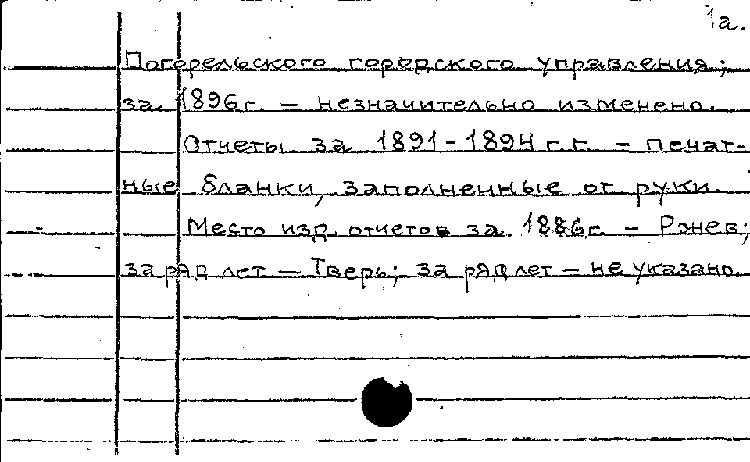 1а.
Погорельского городского управления;
за 1896г. – незначительно изменено.
Отчеты за 1891-1894 г.г. – печат-
ные бланки, заполненные от руки.
Место изд. отчетов за 1886г. – Ржев;
за ряд лет – Тверь; за ряд лет – не указано.